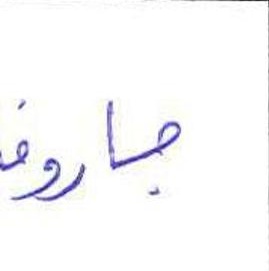 جاروف